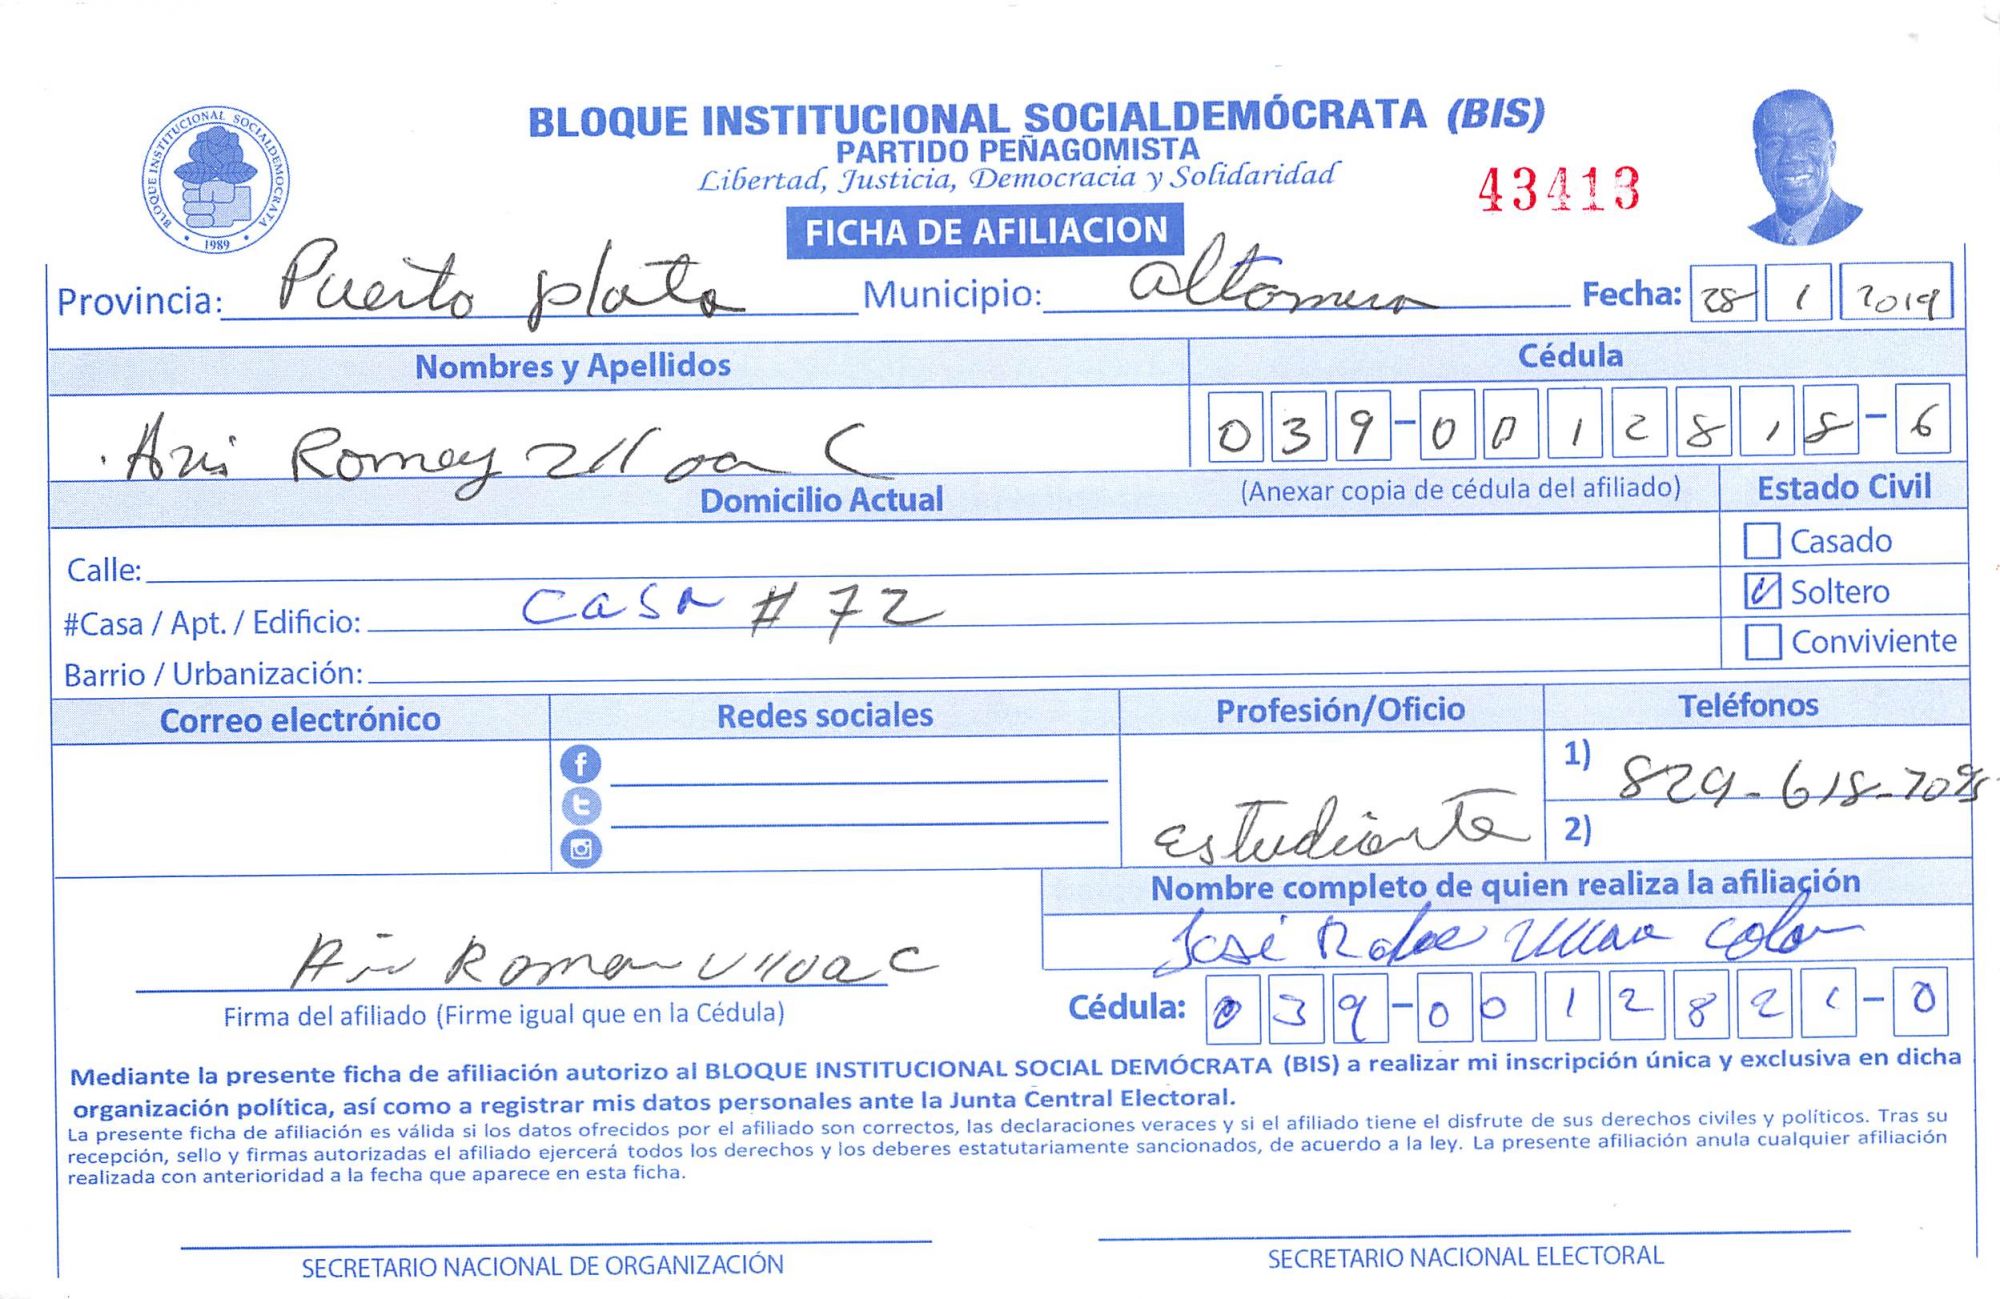 BLOQUE INSTITUCIONAL SOCIALDEMOCRATA
1989
BLOQUE INSTITUCIONAL SOCIALDEMÓCRATA (BIS)
PARTIDO PEÑAGOMISTA
Libertad, Justicia, Democracia y Solidaridad
43413
FICHA DE AFILIACION
Provincia: Puerto plata Municipio: altamira Fecha: 28 1 2019
Nombres y Apellidos Cédula
Romey C 039-0012818-6
Domicilio Actual (Anexar copia de cédula del afiliado) Estado Civil
Calle: Casado
#Casa / Apt. / Edificio: Casa # 72 Soltero
Barrio / Urbanización: Conviviente
Correo electrónico Redes sociales Profesión/Oficio Teléfonos
1) 829-618-
estudiante 2)
Nombre completo de quien realiza la afiliación
José Ulloa Colon
Roman Ulloa C
Firma del afiliado (Firme igual que en la Cédula) Cédula: 039-0012821-0
Mediante la presente ficha de afiliación autorizo al BLOQUE INSTITUCIONAL SOCIAL DEMÓCRATA (BIS) a realizar mi inscripción única y exclusiva en dicha
organización política, así como a registrar mis datos personales ante la Junta Central Electoral.
La presente ficha de afiliación es válida si los datos ofrecidos por el afiliado son correctos, las declaraciones veraces y si el afiliado tiene el disfrute de sus derechos civiles y políticos. Tras su
recepción, sello y firmas autorizadas el afiliado ejercerá todos los derechos y los deberes estatutariamente sancionados, de acuerdo a la ley. La presente afiliación anula cualquier afiliación
realizada con anterioridad a la fecha que aparece en esta ficha.
SECRETARIO NACIONAL DE ORGANIZACIÓN SECRETARIO NACIONAL ELECTORAL